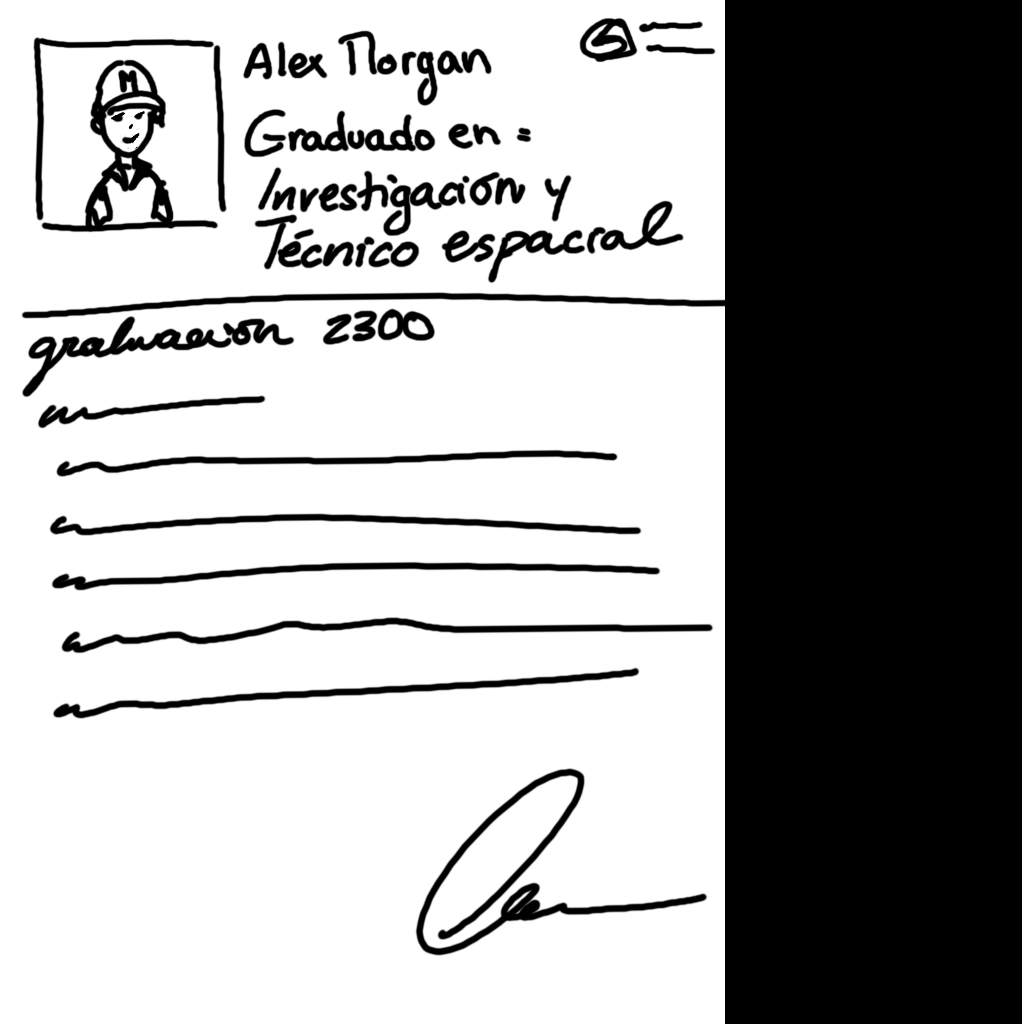 M
Alex Morgan
Graduado en =
Investigación y
Técnico espacial
graduación 2300